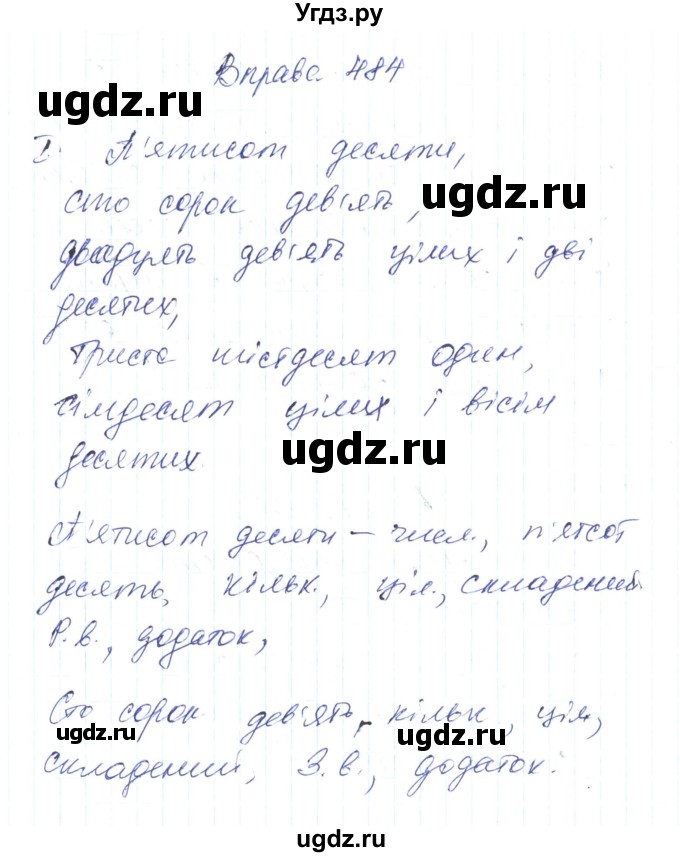 Угдз.ру
Вправа 484
ugdz.ru
I. П'ятисот десяти,
сто сорок дев'ять,
ugdz.ru
двадцять дев'ять цілих і дві
десятих,
Триста шістдесят один,
сімдесят цілих і вісім
десятих
ugdz.ru
П'ятисот десяти – числ., п'ятсот
десять, кільк., ціл., складений
Р.в., додаток,
Сто сорок дев'ять, кільк, ціл,
ugdz.ru
ugdz.ru
складений, З.в., додаток.
ugdz.ru